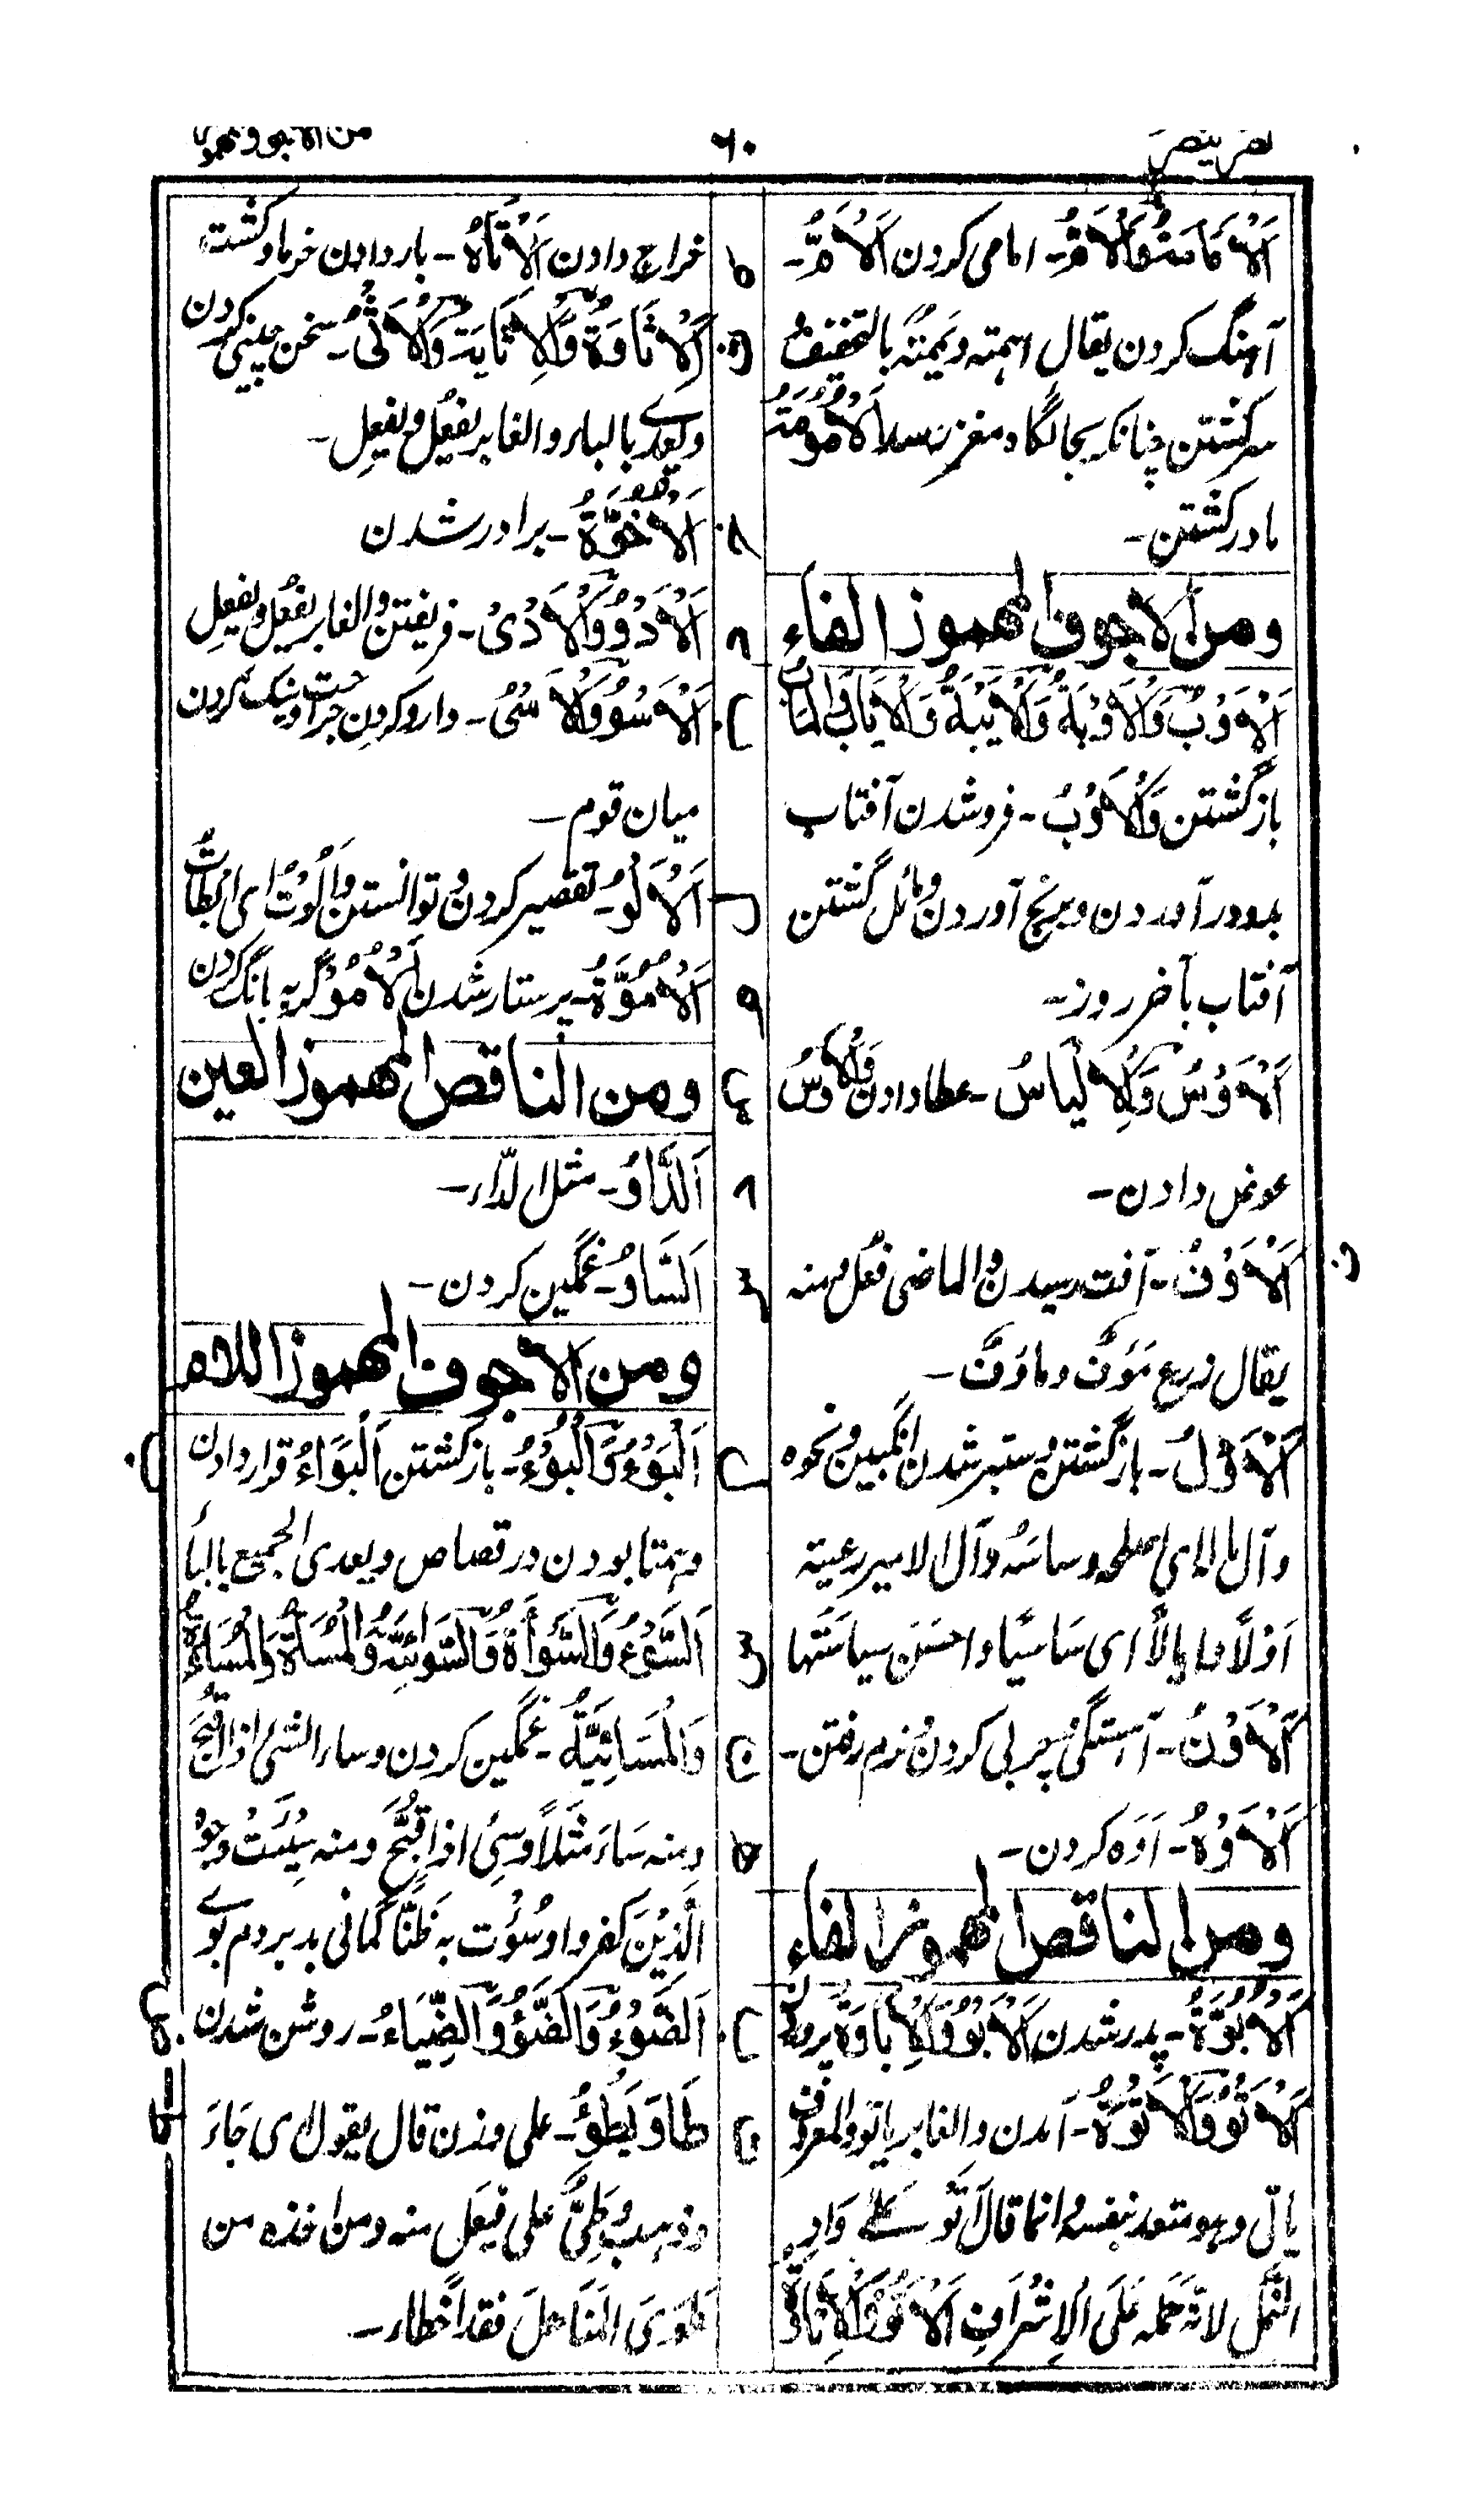 نصر ینصر
۶۰
اَلْاِمَامَةُ وَالْاَمُّ۔ امامی کردن اَلْاَمُّ۔
آهنگ کردن یقال اممته ویممته بالتخفیف و
سرکشتن چنانکه بجالگاه مغز رسد اَلْاُمُومَةُ
مادر گشتن۔
ومن الاجوف المهموز الفاء
اَلْاَوْبُ وَالْاَوْبَةُ وَالْاَیْبَةُ وَالْاِیَابُ
بازگشتن وَالْاَوْبُ۔ فروشدن آفتاب
بدور آمدن وبرنج آوردن و مائل گشتن
آفتاب بآخر روز۔
اَلْاَوْسُ وَالْاِیَاسُ۔ عطا دادن وَالْاَوْسُ
عوض دادن۔
اَلْاَوْفُ۔ آفت رسیدن والماضی فعل منه
یقال زرع مَؤُفٌ وماوف۔
اَلْاَوْلُ۔ بازگشتن و ستبر شدن انگبین ونحوه
وآل ماله ای اصلحه وساسه وآل الامیر رعیته
اَوْلاً وایالاً ای سَاسَهَا واحسَن سیاستَها
اَلْاَوْنُ۔ آهستگی وچربی کردن ونرم رفتن۔
اَلْاَوْهُ۔ اَوَه کردن۔
ومن الناقص المهموز الفاء
اَلْاُبُوَّةُ۔ پدر شدن اَلْاَبْوُ وَالْاِبَاوَةُ
اَلْاَتْوُ وَالْاَتْوَةُ۔ آمدن والغابر یاتو والمعروف
یاتی وهو متعد بنفسه وانما قال اَتَوْ عَلٰی وَادِ
النَّمْلِ لانه حَمَله عَلَی الْاِشْرَافِ اَلْاَتْوُ وَالْاِتَاوَةُ
خراج دادن اَلْاَتَاءُ۔ بار دادن خرما وکشت
اَلْاِثَاوَةُ وَالْاِثَایَةُ وَالْاَثْیُ۔ سخن چینی کردن
ویعدی بالباء والغابر یفعُل ویفعِل۔
اَلْاُخُوَّةُ۔ برادر شدن
اَلْاَدْوُ وَالْاَدْیُ۔ فریفتن والغابر یفعُل ویفعِل
اَلْاَسْوُ وَالْاَسْیُ۔ دارو کردن جراحت ونیک کردن
میان قوم۔
اَلْاَلْوُ۔ تقصیر کردن وتوانستن وَاَلَوْتُ ای ابطات
اَلْاُمُوَّةُ۔ پرستار شدن اَلْاُمُوْ گربه بانگ کردن
ومن الناقص المهموز العین
اَلدَّاْوُ۔ مثل الدَّاء۔
اَلسَّاْوُ۔ غمگین کردن۔
ومن الاجوف المهموز اللام
اَلْبَوْءُ وَالْبُوُوْءُ۔ بازگشتن اَلْبَوَاءُ قرار دادن
وهمتا بودن در قصاص ویعدی الجمیع بالباء
اَلسَّوْءُ وَالسَّوْأَةُ وَالسَّوَائِیَةُ وَالْمَسَاءَةُ
وَالْمَسَائِیَّةُ۔ غمگین کردن وساء الشئ اذا قَبُحَ
ومنه سَاءَ مَثَلاً وسِئَ اذا قُبِّحَ ومنه سِیْئَتْ وُجُوْهُ
الَّذِیْنَ کفروا وسُؤْتُ به ظَنًّا گمانی بد بردم بوے
اَلضَّوْءُ وَالضُّوْءُ وَالضِّیَاءُ۔ روشن شدن
طَاءَ یَطُوْءُ۔ علی وزن قال یقول ای جَاءَ
وذهب طَیِّئٌ علی فیعَل منه ومن اخذه من
طَوَی الْمَنَاهِلَ فقد اَخْطَا۔